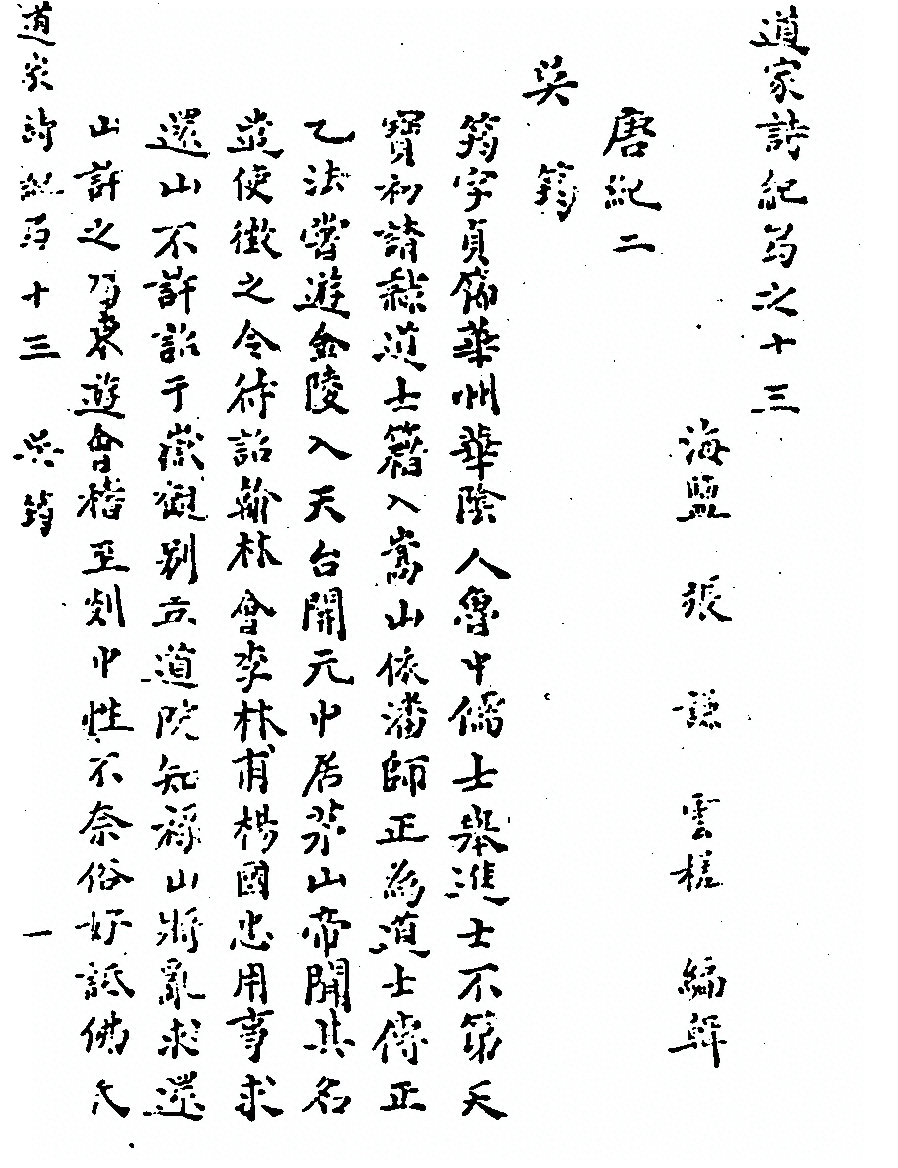 道家詩紀菊之十三
海盬 張 謙 雲槎 編輯
唐紀二
吳 筠
筠字貞節華州華陰人魯中儒士舉進士不第天
寶初請隸道士籍入嵩山依潘師正為道士傳正
乙法嘗遊金陵入天台開元中居茅山帝聞其名
遣使徵之令待詔翰林會李林甫楊國忠用事求
還山不許詔于嶽觀別立道院知祿山將亂求還
山許之乃東遊會稽至剡中性不奈俗好詆佛氏
道家詩紀 十三 吳筠 一